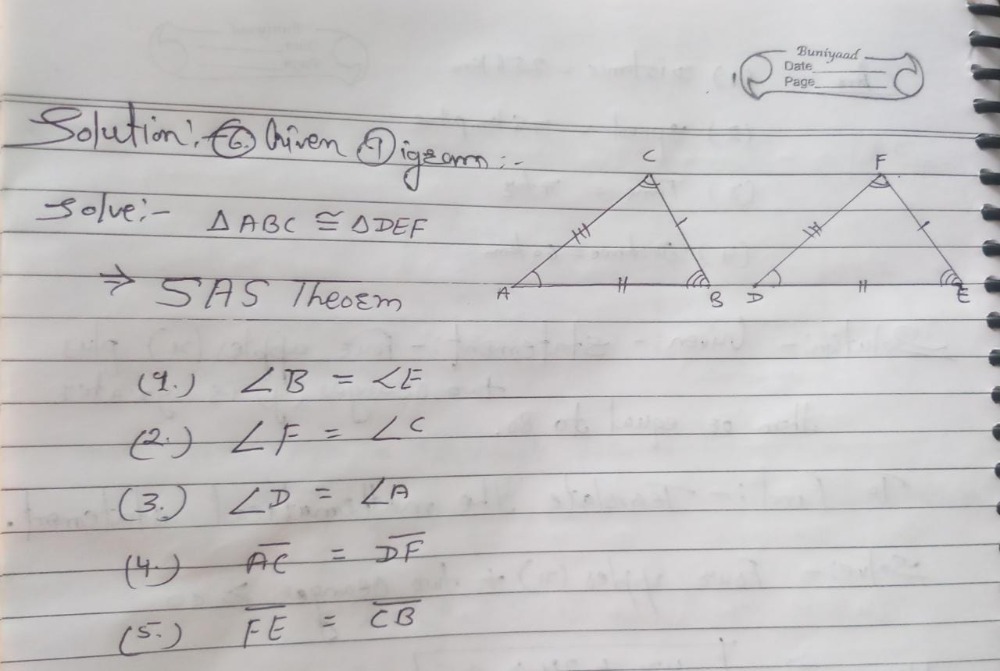 Buniyaad
Date
Page
Solution:- 6. Given Digram :-
Solve:- △ABC ≅ △DEF
⇒ SAS Theorem
(1.) ∠B = ∠E
(2.) ∠F = ∠C
(3.) ∠D = ∠A
(4.) A̅C̅ = D̅F̅
(5.) F̅E̅ = C̅B̅
C
F
A
B
D
E